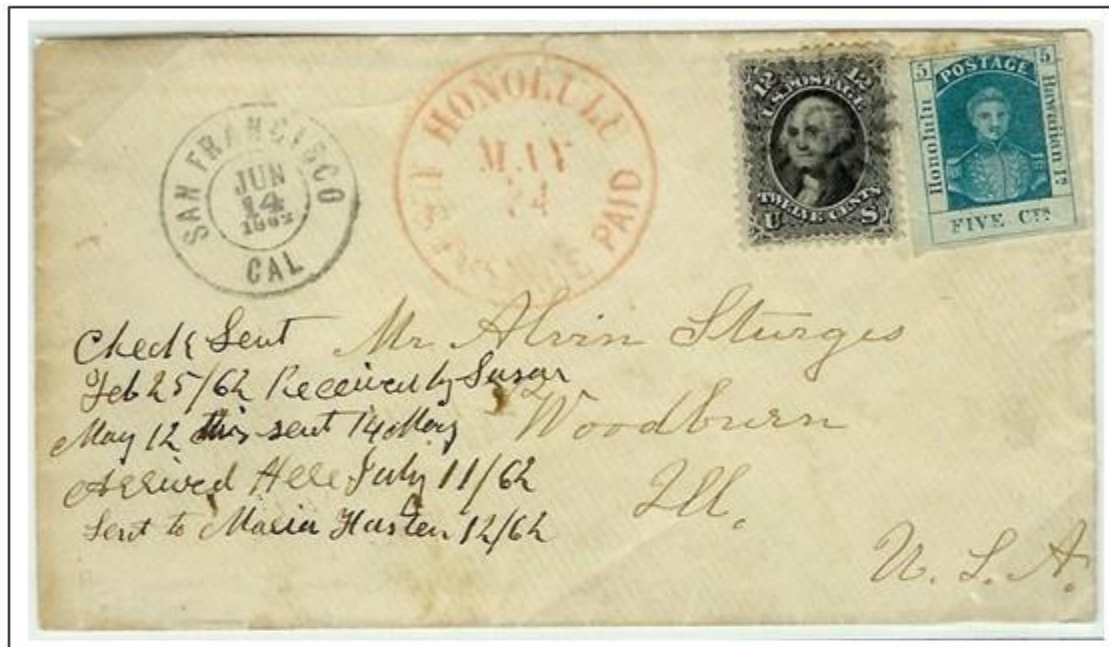 SAN FRANCISCO
JUN
14
CAL
HONOLULU
MAY
U.S. POSTAGE PAID
12 12
U.S. POSTAGE
TWELVE CENTS
U S
5 POSTAGE 5
Honolulu
Hawaiian Is.
FIVE Cts.
Mr. Alvin Sturges
Woodburn
Ill.
U. S. A.
Check Sent
Feb 25/62 Received by Susan
May 12 this sent 14 May
Arrived Here July 11/62
Sent to Maria 12/62